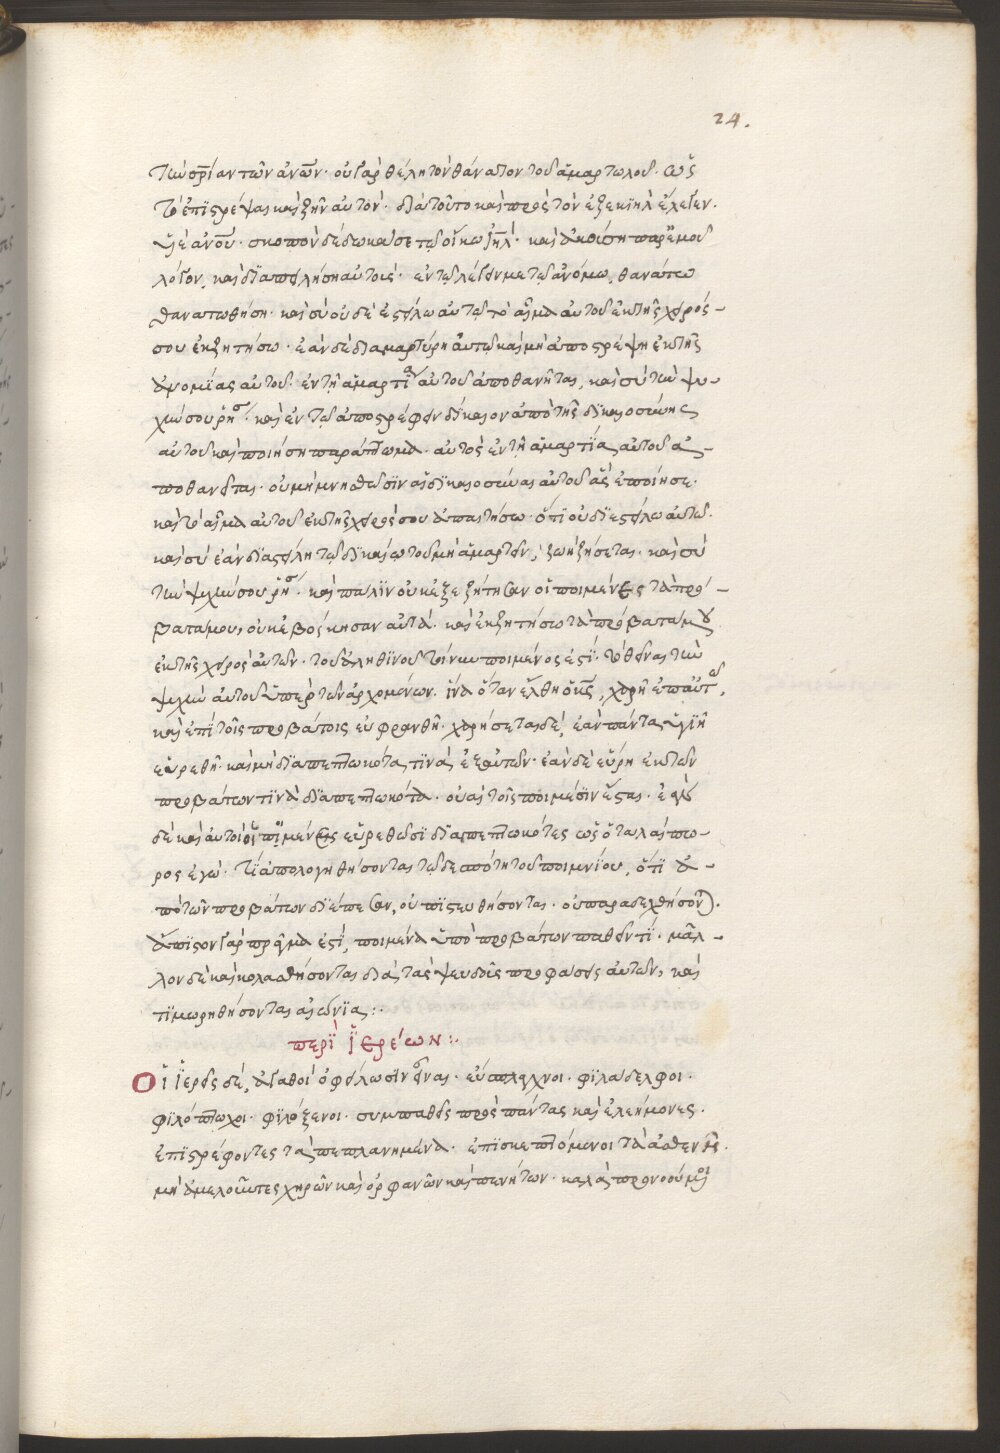 24.
τὴν σρίαν τῶν ἀνῶν· οὐ γὰρ θέλη τὸν θάνατον τοῦ ἁμαρτωλοῦ· ὡς
τὸ ἐπιστρέψαι καὶ ζῆν αὐτόν· διὰ τοῦτο καὶ πρὸς τὸν ἐζεκιὴλ ἔλεγεν·
ὑιὲ ἀνοῦ· σκοπὸν δέδωκά σε τῷ οἴκω ἰηλ· καὶ ἀκούση παρ' ἐμοῦ
λόγον, καὶ διαπειλήση αὐτοῖς· ἐν τῷ λέγειν με τῷ ἀνόμω, θανάτω
θανατωθήση· καὶ σὺ οὐδὲ ἐστείλω αὐτῷ τὸ αἷμα αὐτοῦ ἐκ τῆς χειρός
σου ἐκζητήσω· ἐὰν δὲ διαμαρτύρη αὐτῷ καὶ μὴ ἀποστρέψη ἐκ τῆς
ἀνομίας αὐτοῦ· ἐν τῇ ἁμαρτία αὐτοῦ ἀποθανῆται, καὶ σὺ τὴν ψυ-
χήν σου ῥήσ· καὶ ἐν τῷ ἀποστρέφειν δίκαιον ἀπὸ τῆς δικαιοσύνης
αὐτοῦ καὶ ποιήση παράπτωμα· αὐτὸς ἐν τῇ ἁμαρτία αὐτοῦ ἀ-
ποθανεῖται· οὐ μὴ μνησθῶσιν αἱ δικαιοσύναι αὐτοῦ ἃς ἐποίησε·
καὶ τὸ αἷμα αὐτοῦ ἐκ τῆς χειρός σου ἀπαιτήσω· ὅτι οὐ διεστείλω αὐτῷ·
καὶ σὺ ἐὰν διαστείλη τῷ δικαίω τοῦ μὴ ἁμαρτεῖν, ζωῇ ζήσεται· καὶ σὺ
τὴν ψυχήν σου ῥήσ· καὶ πάλιν οὐκ ἐξεζήτησαν οἱ ποιμένες τὰ πρό-
βατά μου, οὐκ ἐβόσκησαν αὐτά· καὶ ἐκζητήσω τὰ πρόβατά μου
ἐκ τῆς χειρὸς αὐτῶν· τοῦ ἀληθινοῦ τοίνυν ποιμένος ἐστί· τὸ θεῖναι τὴν
ψυχὴν αὐτοῦ ὑπὲρ τῶν ἀρχομένων· ἵνα ὅταν ἔλθη ὁ κς, χαρῆ ἐπ' αὐτῷ,
καὶ ἐπὶ τοῖς προβάτοις εὐφρανθῆ· χαρήσεται δὲ, ἐὰν πάντα ὑγιῆ
εὑρεθῆ· καὶ μὴ διαπεπτωκότα τινὰ ἐξ αὐτῶν· ἐὰν δὲ εὕρη ἐκ τῶν
προβάτων τινὰ διαπεπτωκότα· οὐαὶ τοῖς ποιμέσιν ἔσται· εἰ γὰρ
δὲ καὶ αὐτοὶ οἱ ποιμένες εὑρεθῶσι διαπεπτωκότες ὡς ὁ ταλαίπω-
ρος ἐγώ· τί ἀπολογηθήσονται τῷ δεσπότη τοῦ ποιμνίου, ὅτι ἀ-
πὸ τῶν προβάτων διέπεσαν, οὐ πιστευθήσονται· οὐ παραδεχθήσονται·
ἄπιστον γὰρ πρᾶγμα ἐστί, ποιμένα ὑπὸ προβάτων παθεῖν τί· μᾶλ-
λον δὲ καὶ κολασθήσονται διὰ τὰς ψευδεῖς προφάσεις αὐτῶν, καὶ
τιμωρηθήσονται αἰωνίως:·
περὶ ἱερέων:·
Οἱ ἱερεῖς δὲ, ἀγαθοὶ ὀφείλωσιν εἶναι· εὔσπλαγχνοι· φιλάδελφοι·
φιλόπτωχοι· φιλόξενοι· συμπαθεῖς πρὸς πάντας καὶ ἐλεήμονες·
ἐπιστρέφοντες τὰ πεπλανημένα· ἐπισκεπτόμενοι τὰ ἀσθενῆ·
μὴ ἀμελοῦντες χηρῶν καὶ ὀρφανῶν καὶ πενήτων· καλὰ προνοούμενοι